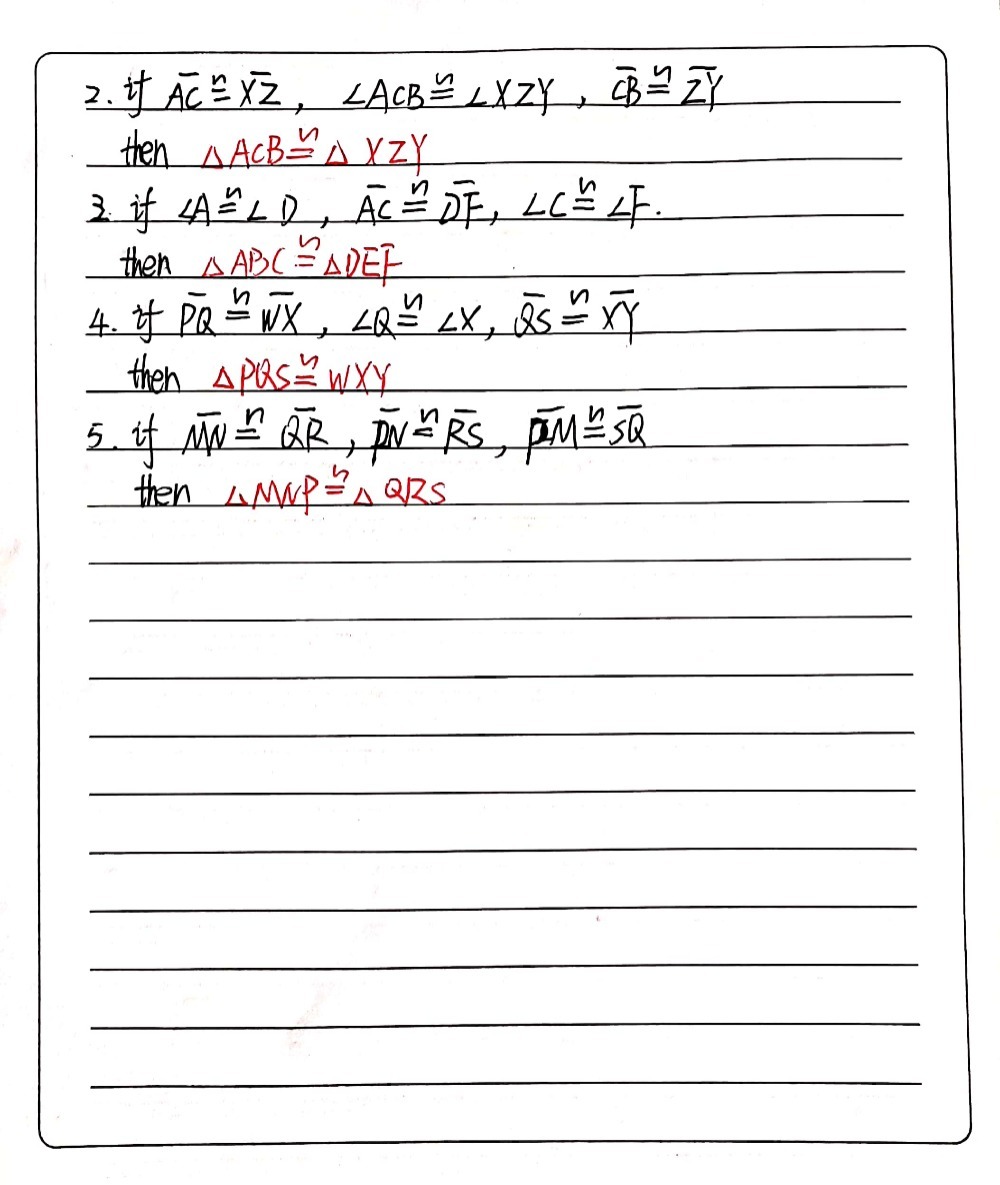 2. if A̅C̅ ≅ X̅Z̅, ∠ACB ≅ ∠XZY, C̅B̅ ≅ Z̅Y̅
then △ACB ≅ △XZY
3. if ∠A ≅ ∠D, A̅C̅ ≅ D̅F̅, ∠C ≅ ∠F.
then △ABC ≅ △DEF
4. if P̅Q̅ ≅ W̅X̅, ∠Q ≅ ∠X, Q̅S̅ ≅ X̅Y̅
then △PQS ≅ WXY
5. if M̅N̅ ≅ Q̅R̅, P̅N̅ ≅ R̅S̅, P̅M̅ ≅ S̅Q̅
then △MNP ≅ △QRS